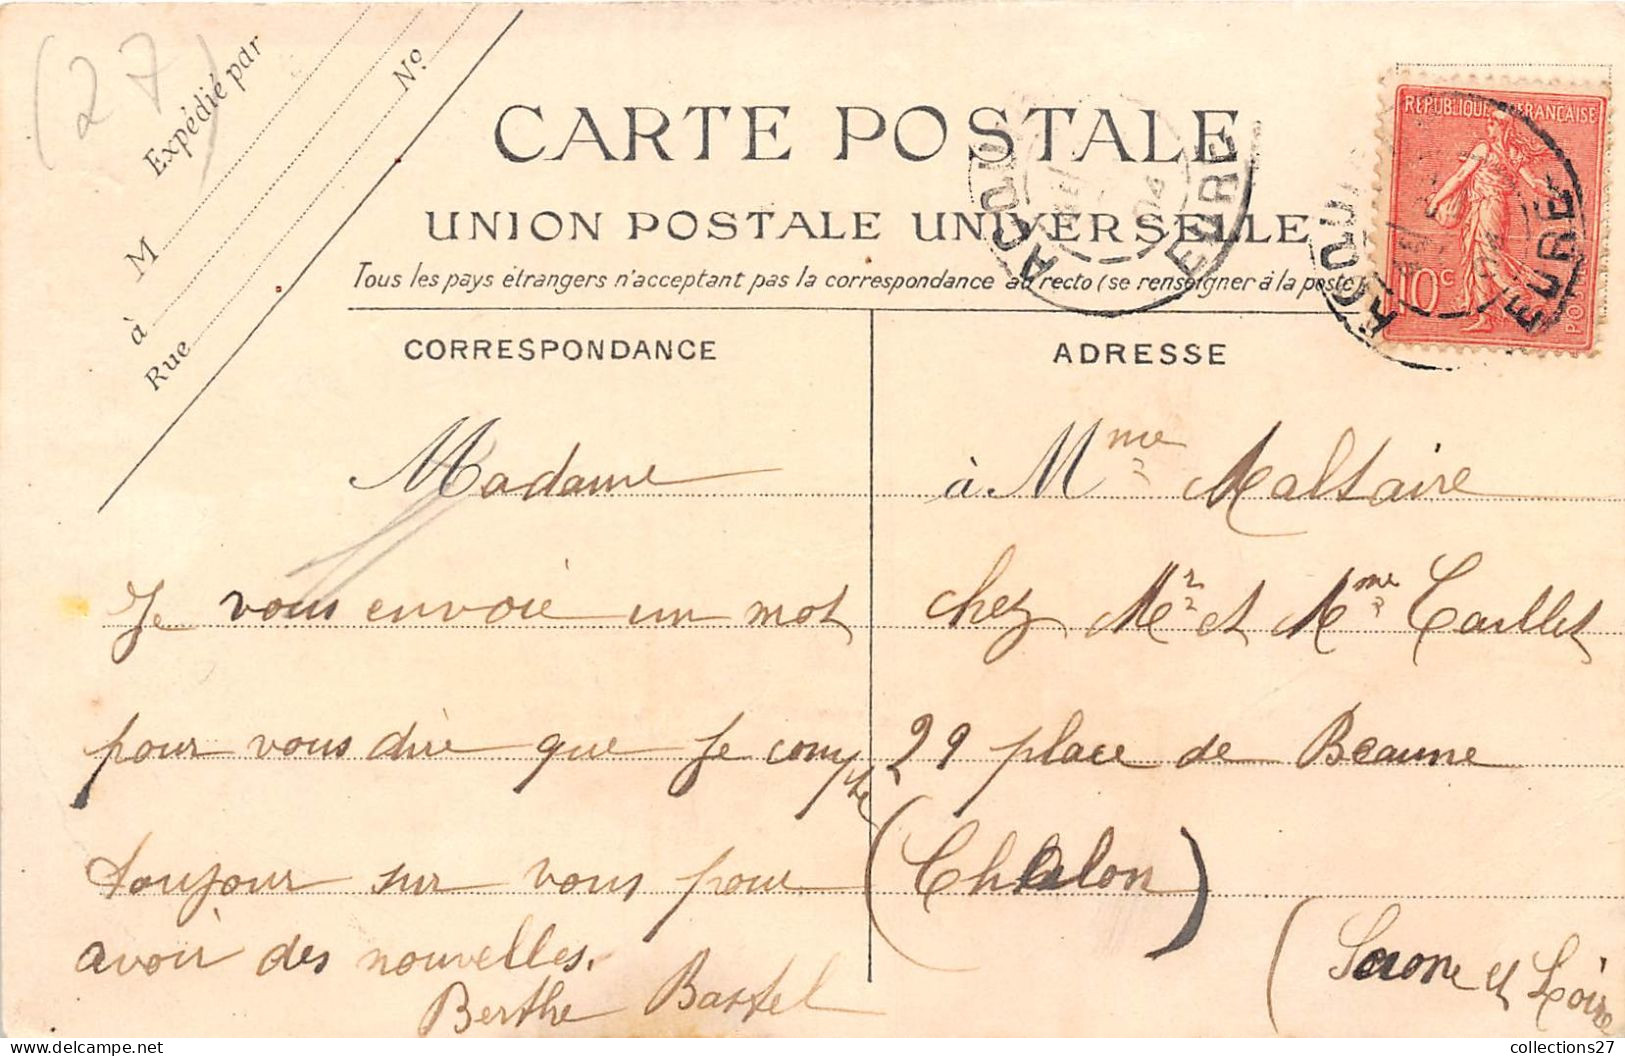 (27)
Expédié par
M
Nº
à
Rue
CARTE POSTALE
UNION POSTALE UNIVERSELLE
Tous les pays étrangers n'acceptant pas la correspondance au recto (se renseigner à la poste)
REPUBLIQUE FRANÇAISE
10c
EURE
04
EURE
CORRESPONDANCE
ADRESSE
Madame
Je vous envoie un mot
pour vous dire que Je compte
toujour sur vous pour
avoir des nouvelles.
Berthe Bastel
à Mme Maltaire
chez Mr et Mme Caillet
29 place de Beaune
(Chalon)
(Saone et Loire
collections27